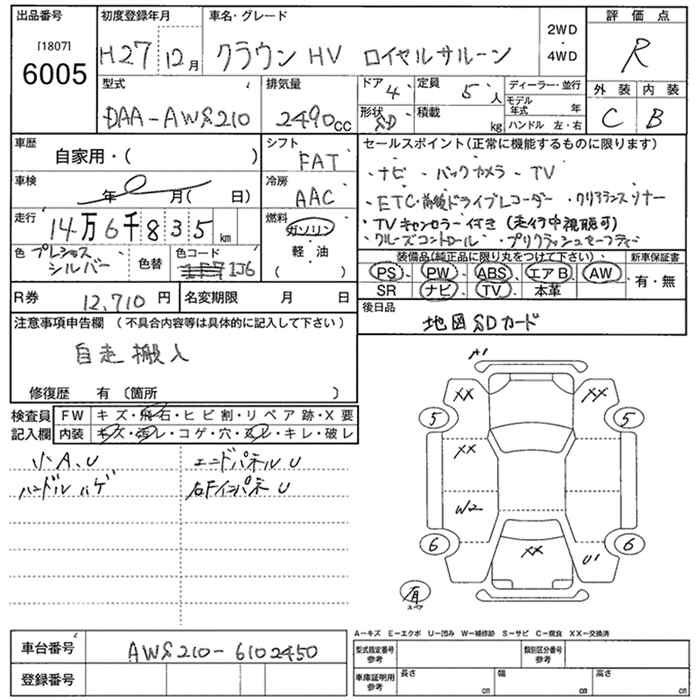 出品番号 初度登録年月 車名・グレード 2WD 評価点
[1807] 6005 H27 12月 クラウン HV ロイヤルサルーン ・ 4WD R
型式 排気量 ドア 4 定員 5人 ディーラー・並行 外装 内装
DAA-AWS210 2490cc 形状 SD 積載 kg モデル年式 年 C B
ハンドル 左・右
車歴 シフト セールスポイント(正常に機能するものに限ります)
自家用・( ) FAT ・ナビ ・バックカメラ ・TV
車検 冷房 ・ETC・前後ドライブレコーダー ・クリアランスソナー
年 月( 日) AAC ・TVキャンセラー付き (走行中視聴可)
走行 14万6千835km 燃料 ガソリン ・クルーズコントロール ・プリクラッシュセーフティ
色 プレシャスシルバー 色替 色コード 1J6 軽油 ( ) 装備品(純正品に限り丸をつけて下さい) 新車保証書
PS PW ABS エアB AW 有・無
SR ナビ TV 本革
R券 12,710円 名変期限 月 日 後日品
地図SDカード
注意事項申告欄 (不具合内容等は具体的に記入して下さい)
自走搬入
修復歴 有 〔箇所 〕
検査員記入欄 FW キズ・飛石・ヒビ割・リペア跡・X要
内装 キズ・汚レ・コゲ・穴・スレ・キレ・破レ
小A,U エンドパネルU
ハンドルハゲ 右Fインパネ U
A1
XX XX
5 5
XX
W2
6 XX U1 6
有
スペア
A-キズ E-エクボ U-凹み W-補修跡 S-サビ C-腐食 XX-交換済
車台番号 AWS210-6102450 型式指定番号 参考 類別区分番号
登録番号 車庫証明用 参考 長さ cm 幅 cm 高さ cm